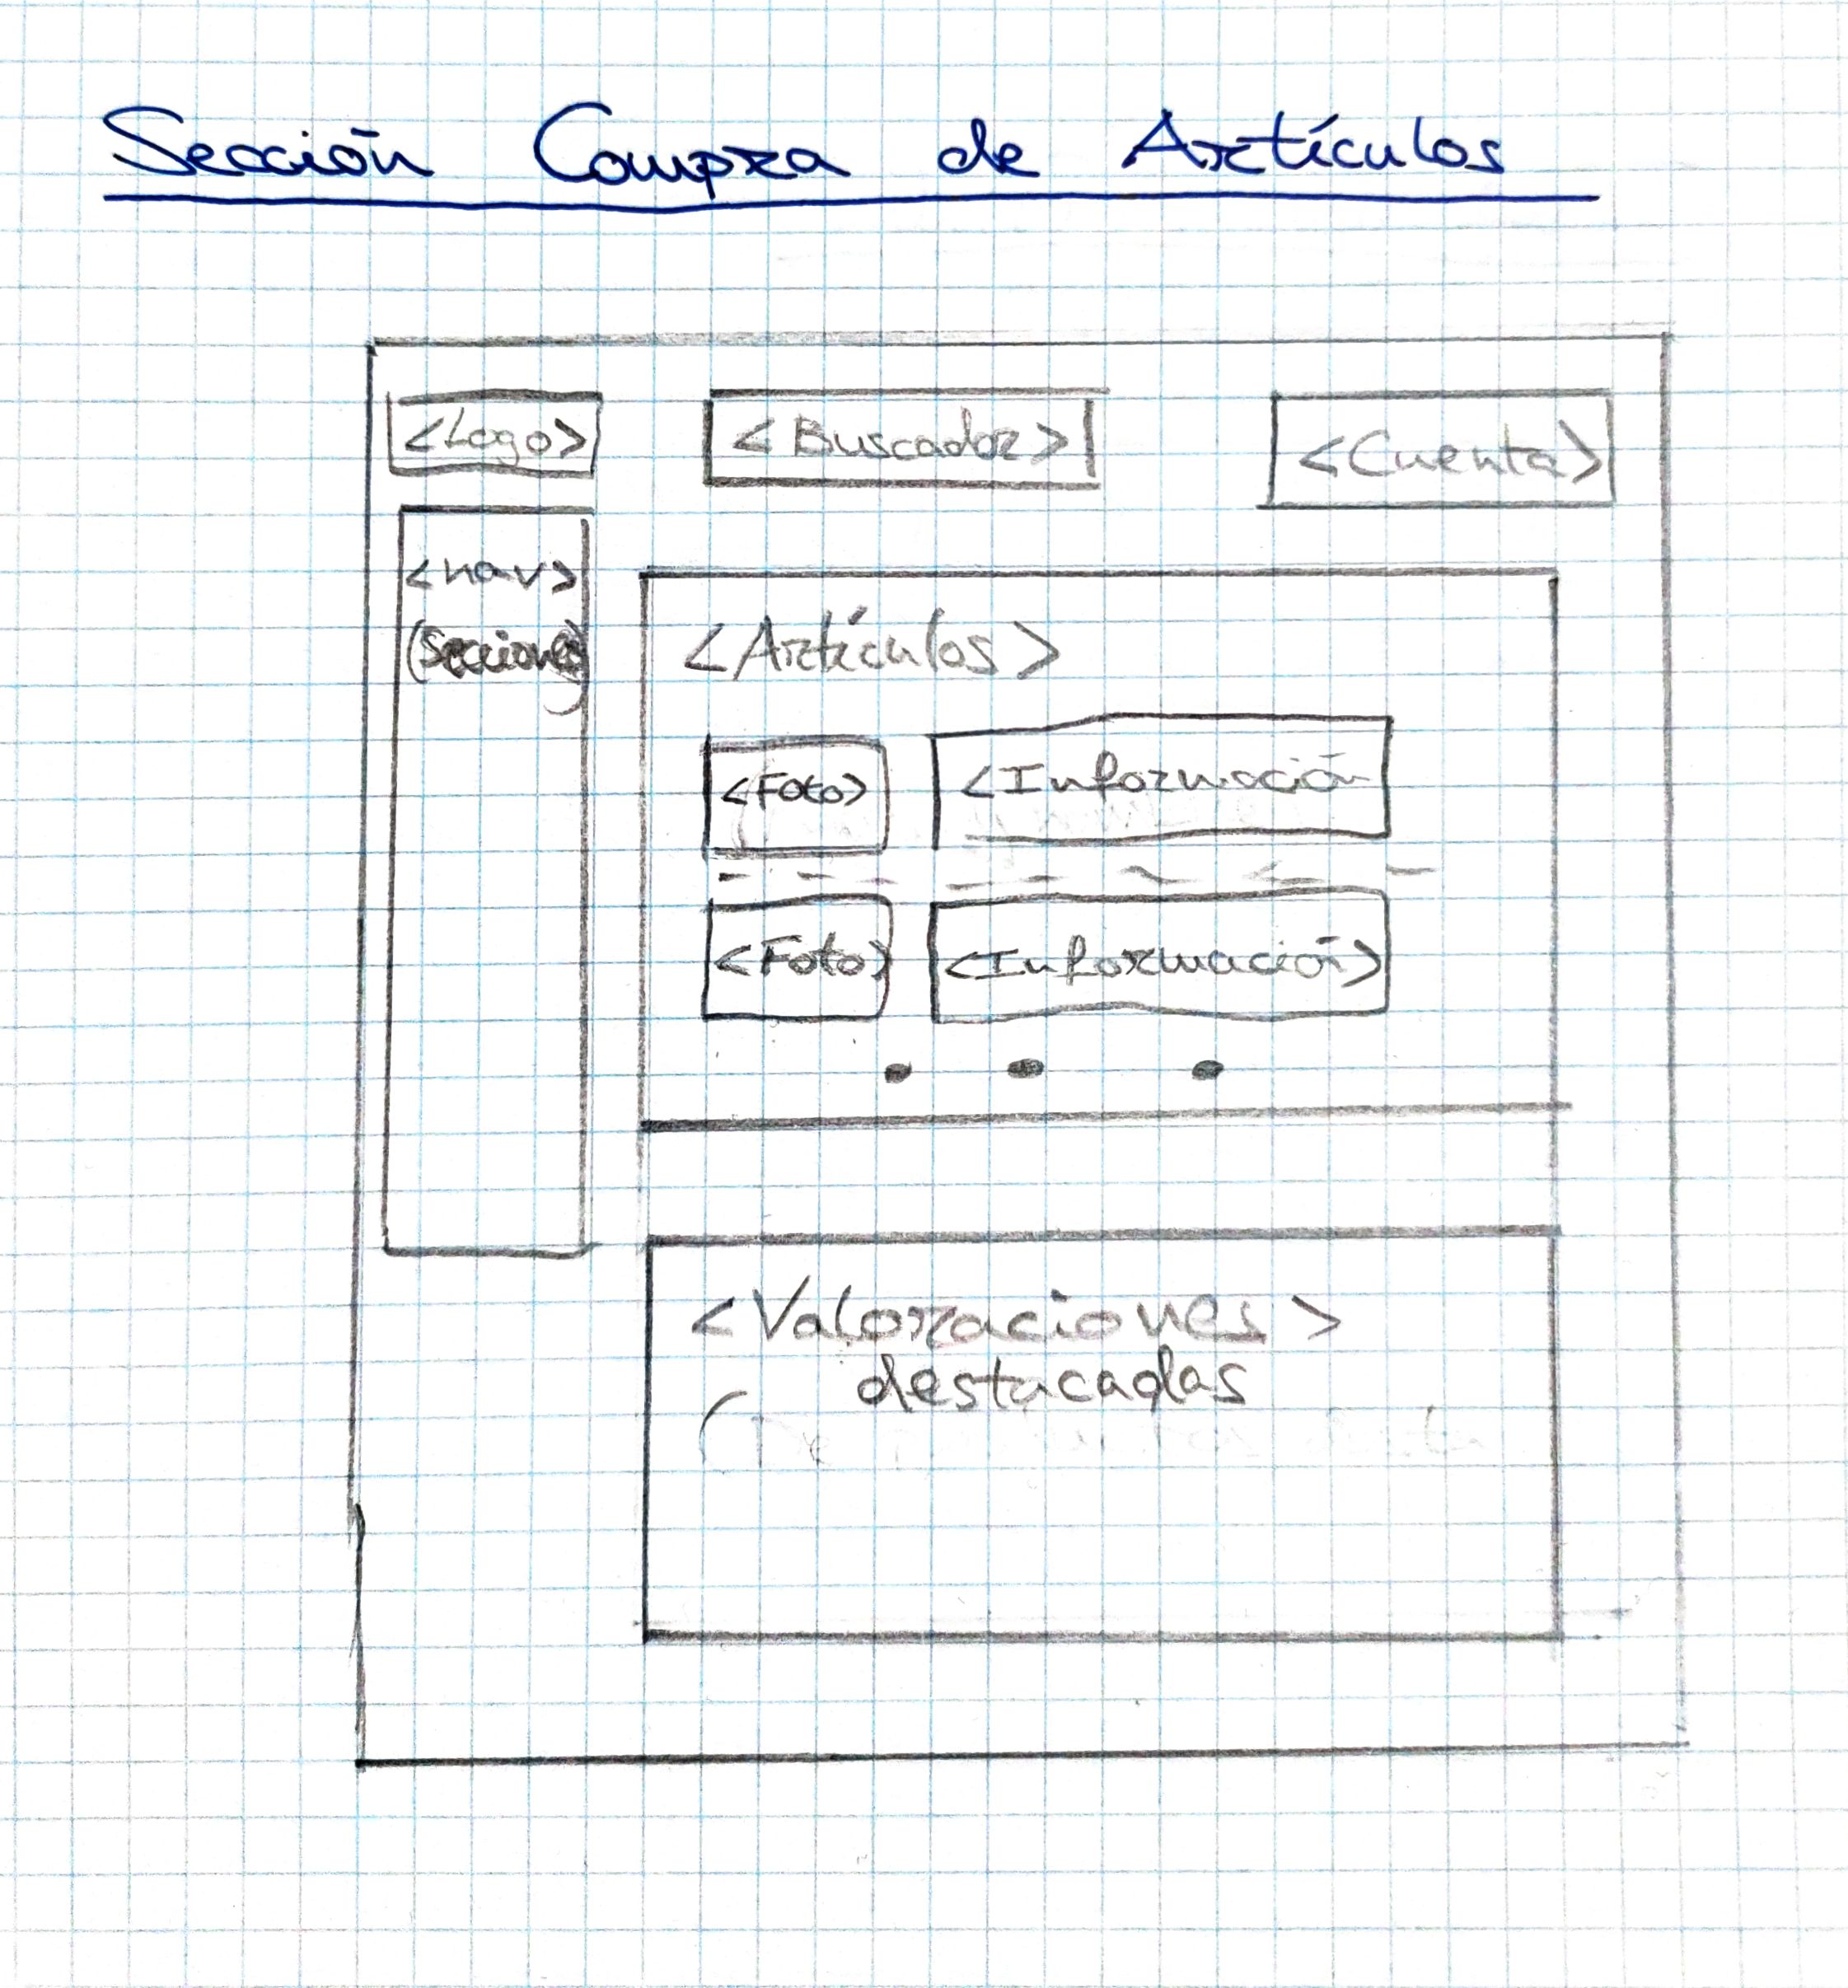 Sección Compra de Artículos
<Logo>
<Buscador>
<Cuenta>
<nav>
(Secciones)
<Artículos>
<Foto>
<Información
<Foto>
<Información>
<Valoraciones>
destacadas